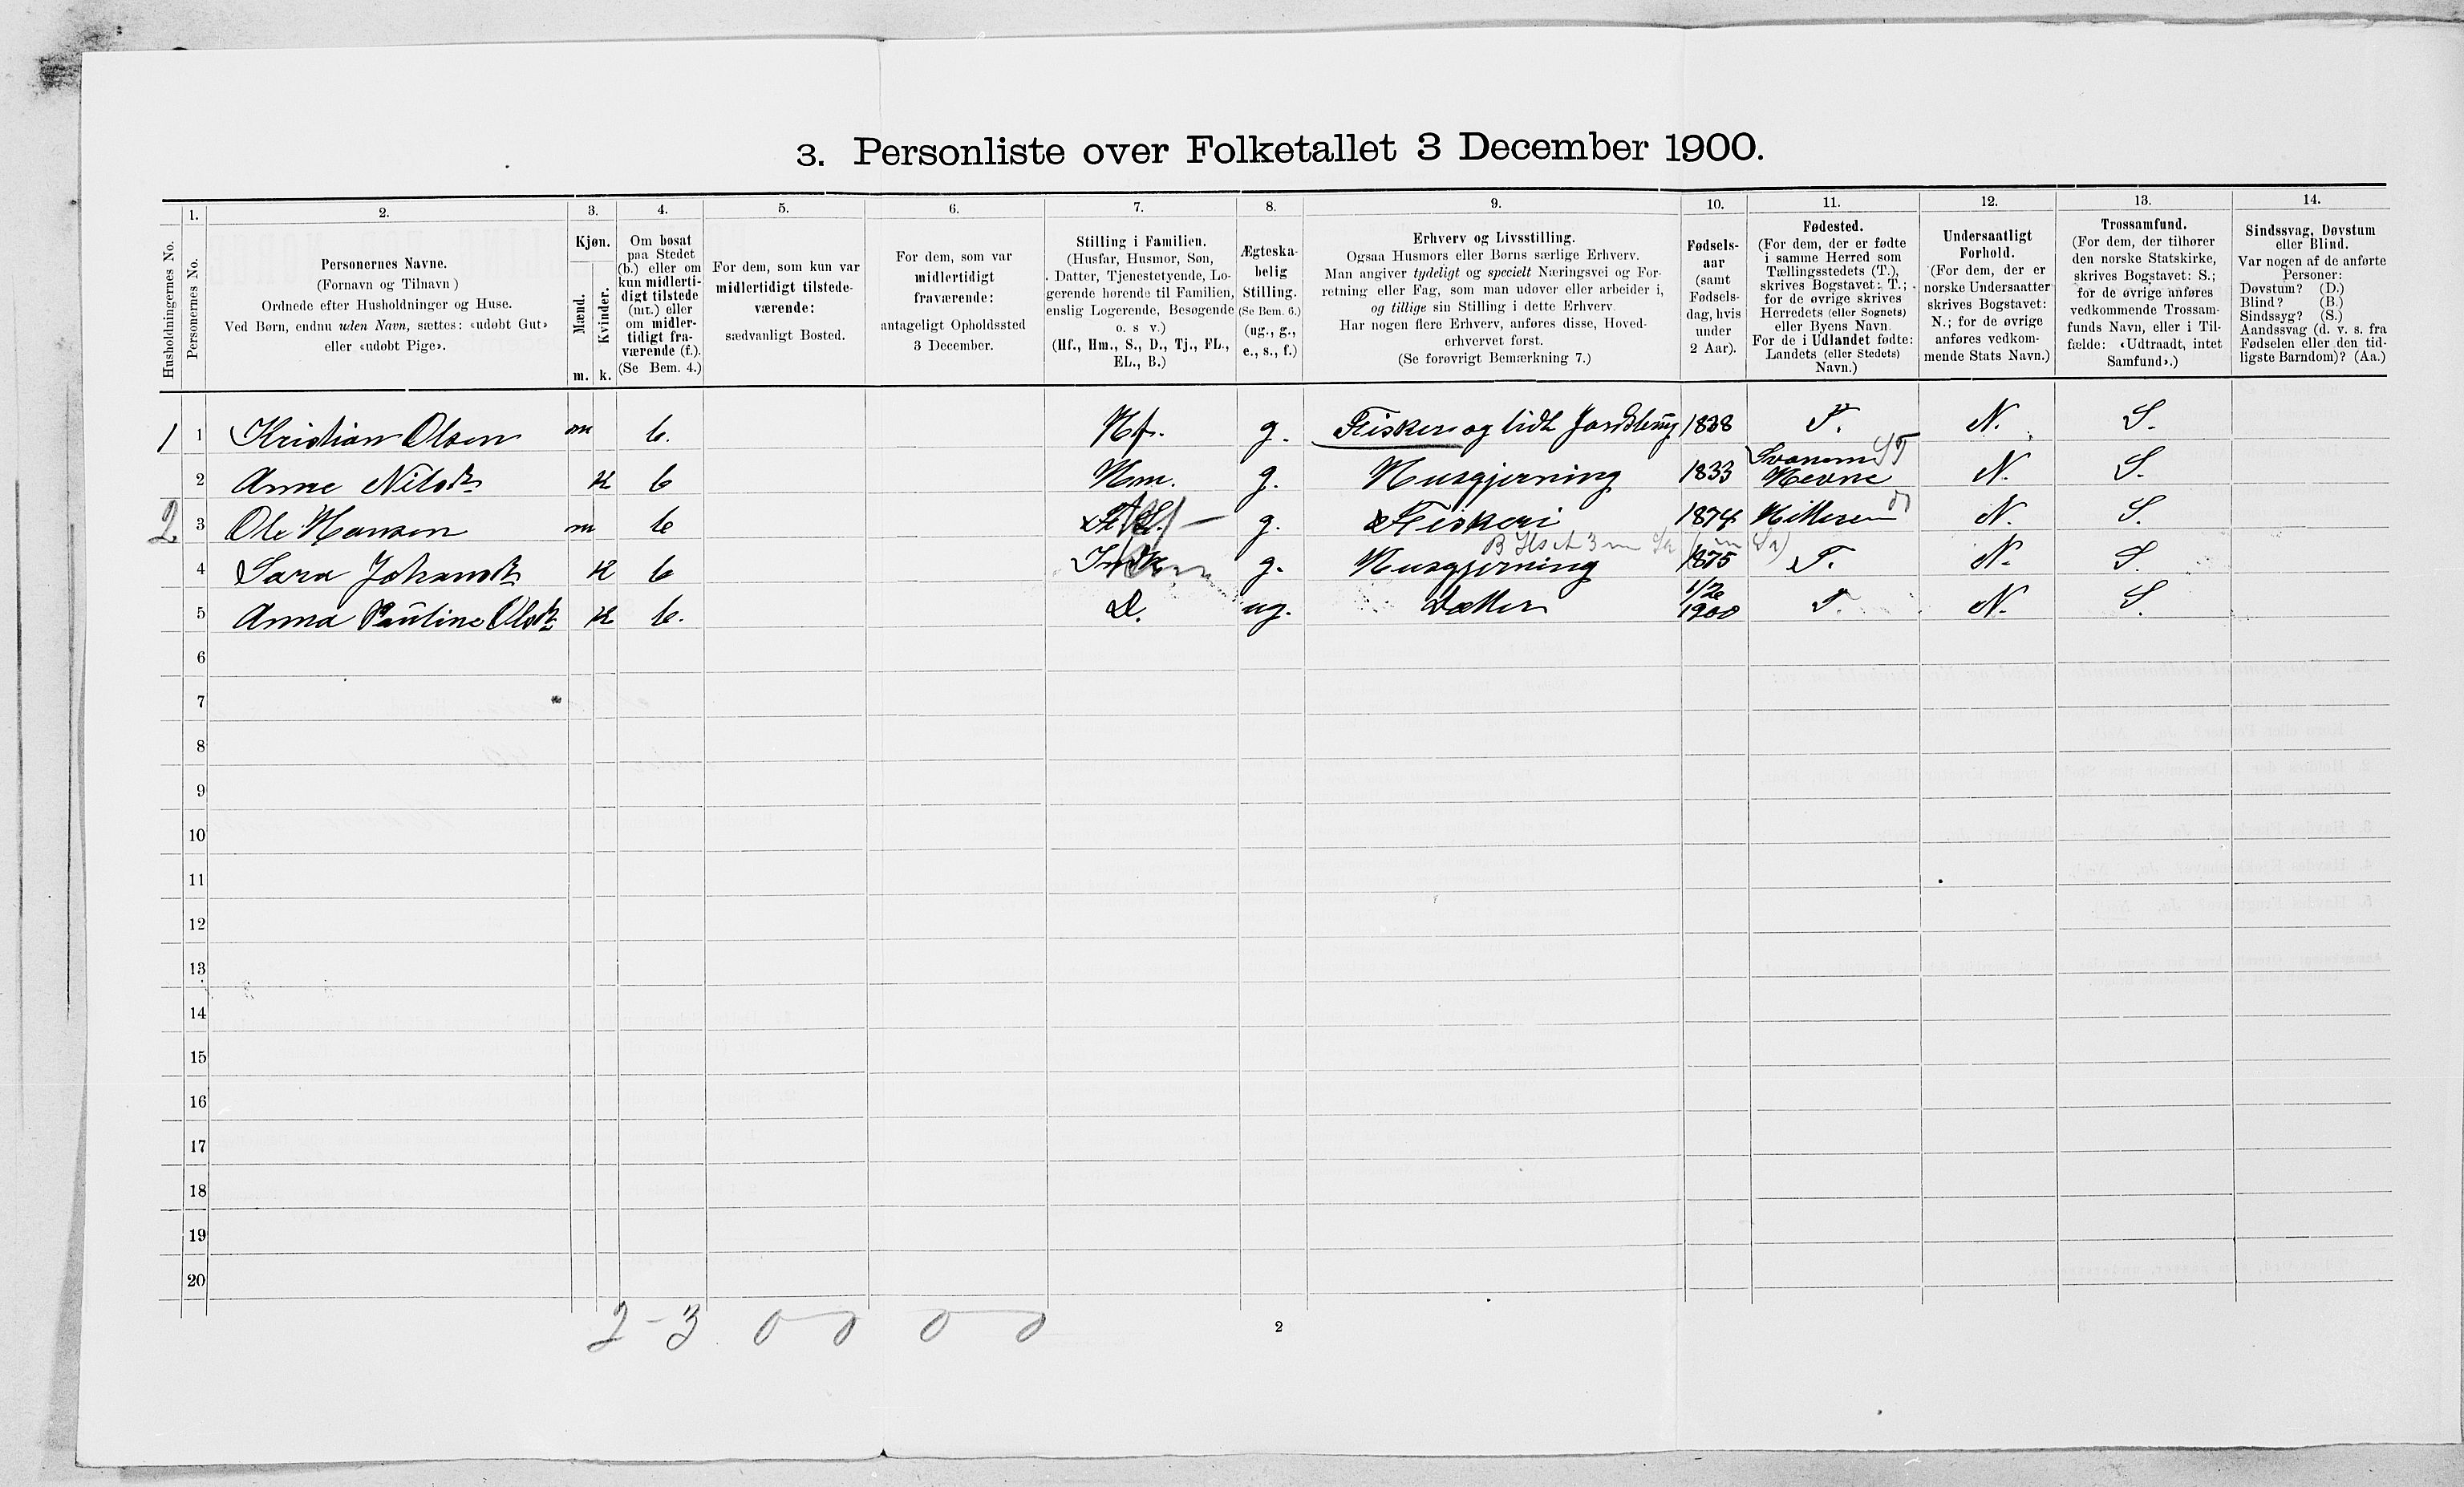 3. Personliste over Folketallet 3 December 1900.
Husholdningernes No.
1.
Personernes No.
2.
Personernes Navne.
(Fornavn og Tilnavn )
Ordnede efter Husholdninger og Huse.
Ved Børn, endnu uden Navn, sættes: «udøbt Gut»
eller «udøbt Pige».
3.
Kjøn.
Mænd.
Kvinder.
m. k.
4.
Om bosat
paa Stedet
(b.) eller om
kun midlerti-
digt tilstede
(mt.) eller
om midler-
tidigt fra-
værende (f.).
(Se Bem. 4.)
5.
For dem, som kun var
midlertidigt tilstede-
værende:
sædvanligt Bosted.
6.
For dem, som var
midlertidigt
fraværende:
antageligt Opholdssted
3 December.
7.
Stilling i Familien.
(Husfar, Husmor, Søn,
Datter, Tjenestetyende, Lo-
gerende hørende til Familien,
enslig Logerende, Besøgende
o. s v.)
(Hf., Hm., S., D., Tj., FL.,
EL., B.)
8.
Ægteska-
belig
Stilling.
(Se Bem. 6.)
(ug., g.,
e., s., f.)
9.
Erhverv og Livsstilling.
Ogsaa Husmors eller Børns særlige Erhverv.
Man angiver tydeligt og specielt Næringsvei og For-
retning eller Fag, som man udøver eller arbeider i,
og tillige sin Stilling i dette Erhverv.
Har nogen flere Erhverv, anføres disse, Hoved-
erhvervet først.
(Se forøvrigt Bemærkning 7.)
10.
Fødsels-
aar
(samt
Fødsels-
dag, hvis
under
2 Aar).
11.
Fødested.
(For dem, der er fødte
i samme Herred som
Tællingsstedets (T.),
skrives Bogstavet: T.;
for de øvrige skrives
Herredets (eller Sognets)
eller Byens Navn.
For de i Udlandet fødte:
Landets (eller Stedets)
Navn.)
12.
Undersaatligt
Forhold.
(For dem, der er
norske Undersaatter
skrives Bogstavet:
N.; for de øvrige
anføres vedkom-
mende Stats Navn.)
13.
Trossamfund.
(For dem, der tilhører
den norske Statskirke,
skrives Bogstavet: S.;
for de øvrige anføres
vedkommende Trossam-
funds Navn, eller i Til-
fælde: «Udtraadt, intet
Samfund».)
14.
Sindssvag, Døvstum
eller Blind.
Var nogen af de anførte
Personer:
Døvstum? (D.)
Blind? (B.)
Sindssyg? (S.)
Aandssvag (d. v. s. fra
Fødselen eller den tid-
ligste Barndom)? (Aa.)
1 1 Kristian Olsen m b. Hf. g. Fiskeri og lidt 1838 T. N. S.
2 Anne Nilsdt. k b Hm. g. Husgjerning 1833 Hevne N. S.
2 3 Ole Hansen m b g. Fiskeri 1874 Hitteren N. S.
4 Sara Johansdt. k b g. Husgjerning 1875 T. N. S.
5 Anna Pauline Olsdt. k b. D. ug. Datter 1900 T. N. S.
6
7
8
9
10
11
12
13
14
15
16
17
18
19
20
2-3 0 0 0 0
2